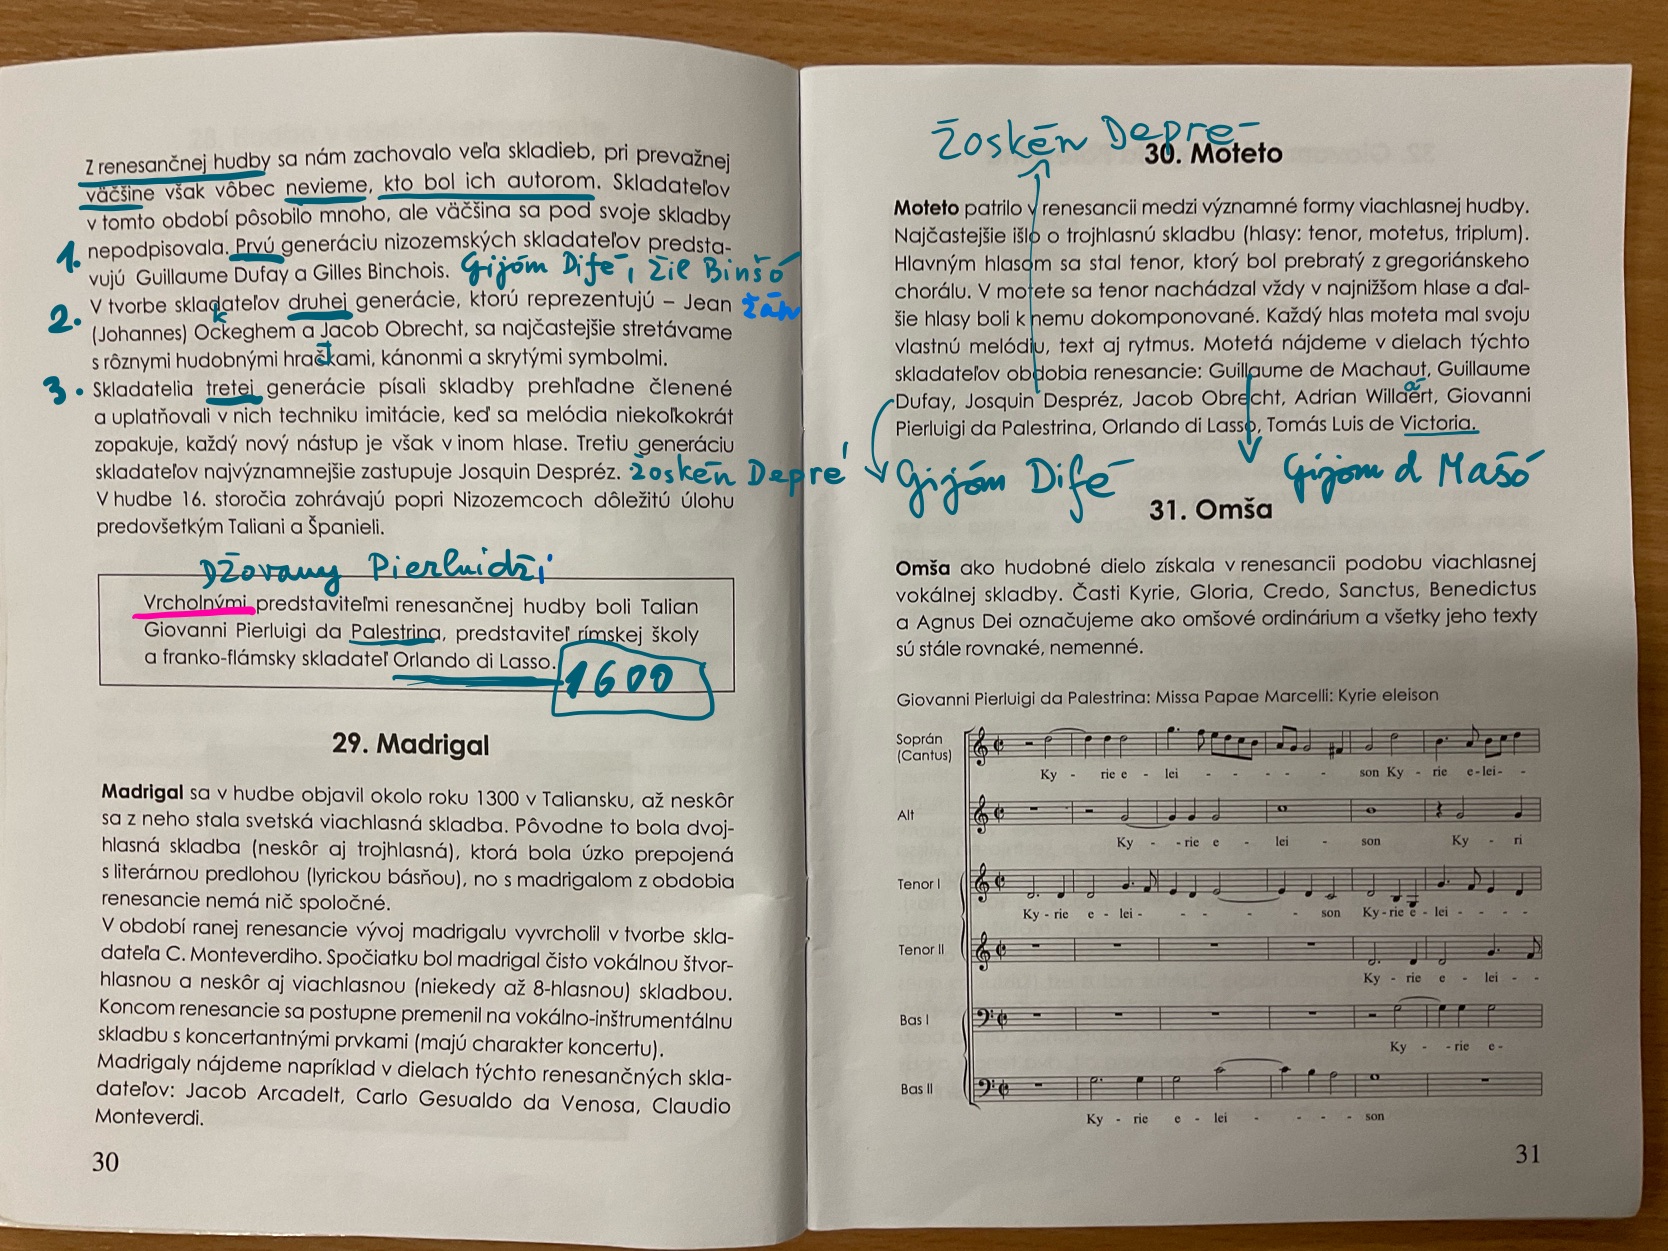 Z renesančnej hudby sa nám zachovalo veľa skladieb, pri prevažnej
väčšine však vôbec nevieme, kto bol ich autorom. Skladateľov
v tomto období pôsobilo mnoho, ale väčšina sa pod svoje skladby
1. nepodpisovala. Prvú generáciu nizozemských skladateľov predsta-
vujú Guillaume Dufay a Gilles Binchois. Gijóm Difé, Žil Binšó
2. V tvorbe skladateľov druhej generácie, ktorú reprezentujú – Jean Žán
k
(Johannes) Ockeghem a Jacob Obrecht, sa najčastejšie stretávame
s rôznymi hudobnými hračkami, kánonmi a skrytými symbolmi.
3. Skladatelia tretej generácie písali skladby prehľadne členené
a uplatňovali v nich techniku imitácie, keď sa melódia niekoľkokrát
zopakuje, každý nový nástup je však v inom hlase. Tretiu generáciu
skladateľov najvýznamnejšie zastupuje Josquin Despréz. Žoskén Depré
V hudbe 16. storočia zohrávajú popri Nizozemcoch dôležitú úlohu
predovšetkým Taliani a Španieli.
Džovany Pierluidži
Vrcholnými predstaviteľmi renesančnej hudby boli Talian
Giovanni Pierluigi da Palestrina, predstaviteľ rímskej školy
a franko-flámsky skladateľ Orlando di Lasso.
1600
29. Madrigal
Madrigal sa v hudbe objavil okolo roku 1300 v Taliansku, až neskôr
sa z neho stala svetská viachlasná skladba. Pôvodne to bola dvoj-
hlasná skladba (neskôr aj trojhlasná), ktorá bola úzko prepojená
s literárnou predlohou (lyrickou básňou), no s madrigalom z obdobia
renesancie nemá nič spoločné.
V období ranej renesancie vývoj madrigalu vyvrcholil v tvorbe skla-
dateľa C. Monteverdiho. Spočiatku bol madrigal čisto vokálnou štvor-
hlasnou a neskôr aj viachlasnou (niekedy až 8-hlasnou) skladbou.
Koncom renesancie sa postupne premenil na vokálno-inštrumentálnu
skladbu s koncertantnými prvkami (majú charakter koncertu).
Madrigaly nájdeme napríklad v dielach týchto renesančných skla-
dateľov: Jacob Arcadelt, Carlo Gesualdo da Venosa, Claudio
Monteverdi.
30
Žoskén Depré
30. Moteto
Moteto patrilo v renesancii medzi významné formy viachlasnej hudby.
Najčastejšie išlo o trojhlasnú skladbu (hlasy: tenor, motetus, triplum).
Hlavným hlasom sa stal tenor, ktorý bol prebratý z gregoriánskeho
chorálu. V motete sa tenor nachádzal vždy v najnižšom hlase a ďal-
šie hlasy boli k nemu dokomponované. Každý hlas moteta mal svoju
vlastnú melódiu, text aj rytmus. Motetá nájdeme v dielach týchto
skladateľov obdobia renesancie: Guillaume de Machaut, Guillaume
á
Dufay, Josquin Despréz, Jacob Obrecht, Adrian Willaert, Giovanni
Pierluigi da Palestrina, Orlando di Lasso, Tomás Luis de Victoria.
Gijóm Difé Gijom d Mašó
31. Omša
Omša ako hudobné dielo získala v renesancii podobu viachlasnej
vokálnej skladby. Časti Kyrie, Gloria, Credo, Sanctus, Benedictus
a Agnus Dei označujeme ako omšové ordinárium a všetky jeho texty
sú stále rovnaké, nemenné.
Giovanni Pierluigi da Palestrina: Missa Papae Marcelli: Kyrie eleison
Soprán
(Cantus)
Ky - rie e - lei - - - - - son Ky - rie e-lei- -
Alt
Ky - - rie e - lei - son Ky - ri
Tenor I
Ky - rie e - lei - - - - - son Ky-rie e - lei - - - -
Tenor II
Ky - rie e - lei - -
Bas I
Ky - - rie e -
Bas II
Ky - rie e - lei - - - - son
31